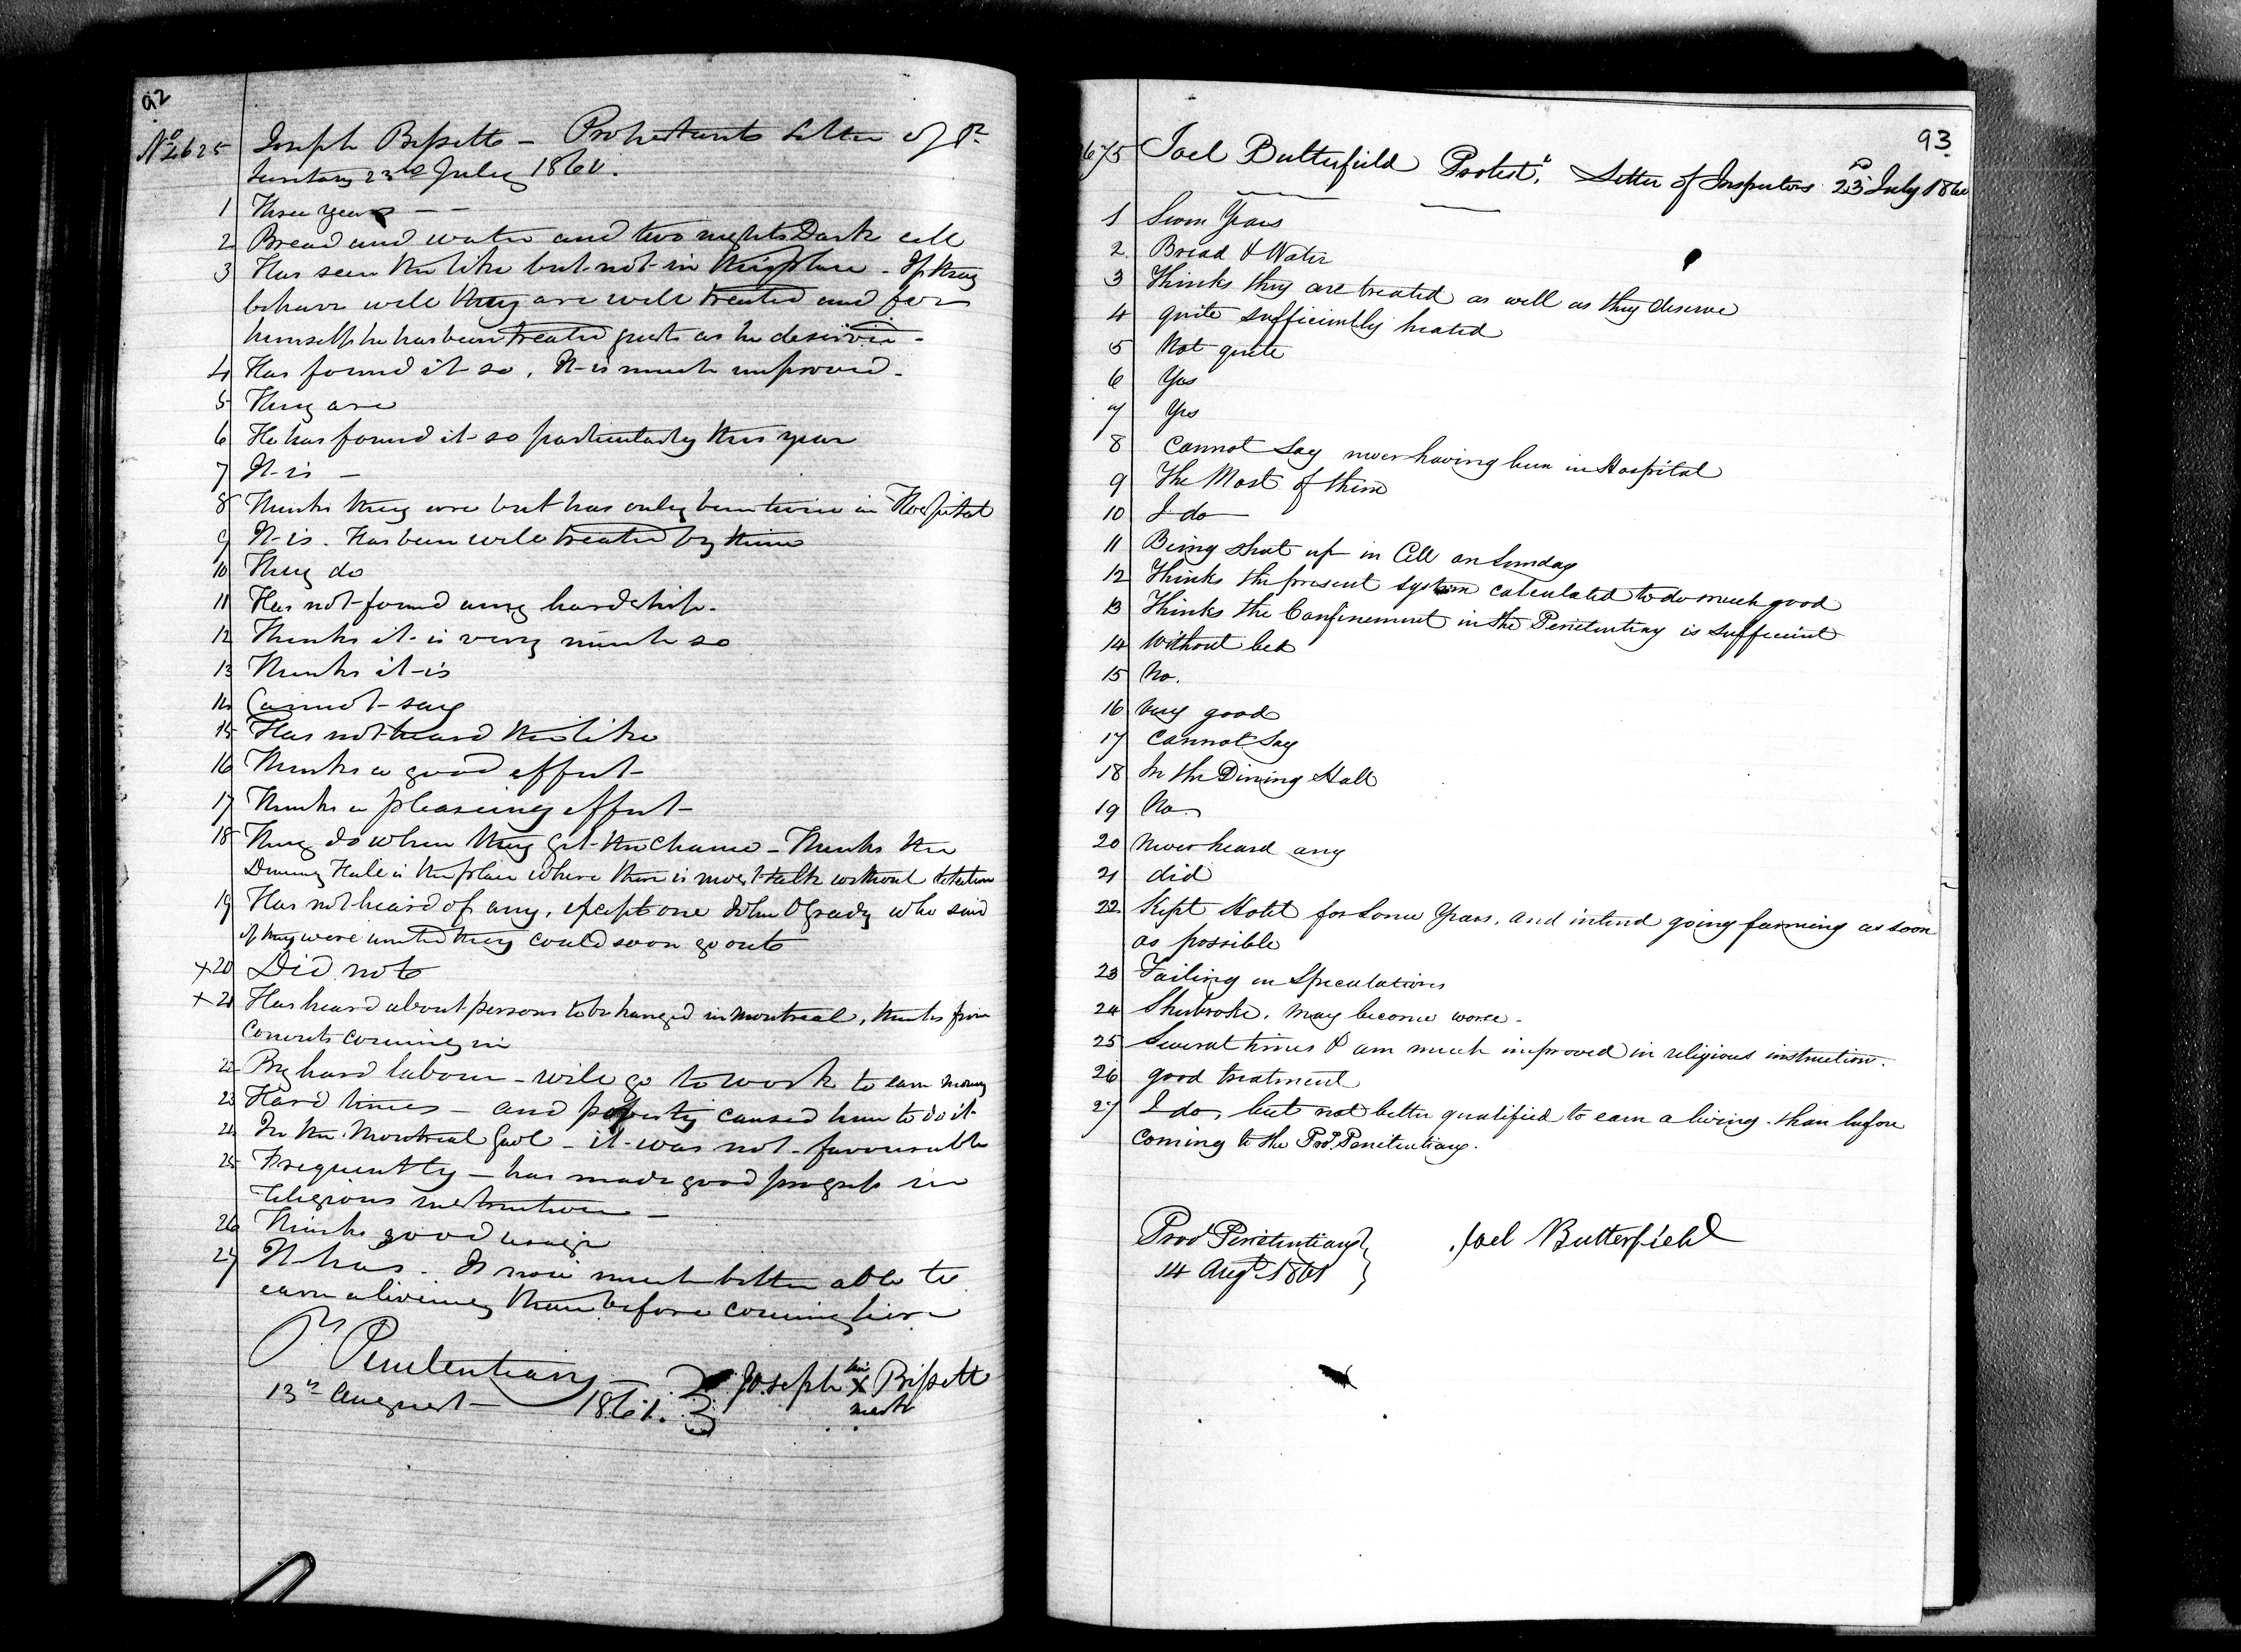 92
No 2625 Joseph Bissette - Protestants Letter of Pr.
Secretary 23rd July 1860.
1 Three years - -
2 Bread and water and two nights Dark cell
3 Has seen the like but not in this place - If they
behave well they are well treated and for
himself he has been treated just as he deserve -
4 Has found it so, It is much improved -
5 They are
6 He has found it so particularly this year
7 It is -
8 Thinks they are but has only been twice in Hospital
9 It is. Has been well treated by him
10 They do
11 Has not found any hardship.
12 Thinks it is very much so
13 Thinks it is
14 Cannot say
15 Has not heard the like
16 Thinks a good effect -
17 Thinks a pleasing effect -
18 They do when they get the chance - Thinks the
Dinning Hall is the place where there is most talk without detection
19 Has not heard of any, except one John OGrady who said
if they were united they could soon go out
x 20 Did not
x 21 Has heard about persons to be hanged in Montreal, thinks from
Convicts coming in
22 By hard labour - will go to work to earn money
23 Hard times - and poverty caused him to do it
24 In the Montreal Gaol - it was not favourable
25 Frequently - has made good progress in
religious instruction -
26 Thinks good usage
27 It has. Is now much better able to
earn a living than before coming here
Pl Penitentiary
13th August - 1861. Joseph his X Bissett
mark
93
675 Joel Butterfield Protest.t Letter of Inspectors 23d July 1860
1 Seven Years
2 Bread & Water
3 Thinks they are treated as well as they deserve
4 quite sufficiently heated
5 Not quite
6 Yes
7 Yes
8 Cannot Say never having been in Hospital
9 The Most of them
10 I do
11 Being shut up in Cell on Sunday
12 Thinks the present system calculated to do much good
13 Thinks the Confinement in the Penitentiary is sufficient
14 Without bed
15 No.
16 Very good
17 Cannot Say
18 In the Dining Hall
19 No.
20 never heard any
21 did
22 Kept Hotel for Some Years, and intend going farming as soon
as possible
23 Failing in Speculations
24 Sherbroke, may become worse -
25 Several times & am much improved in religious instruction.
26 good treatment
27 I do, but not better qualified to earn a living than before
coming to the Prov. Penitentiary.
Prov Penitentiary
14 Augt 1861 Joel Butterfield